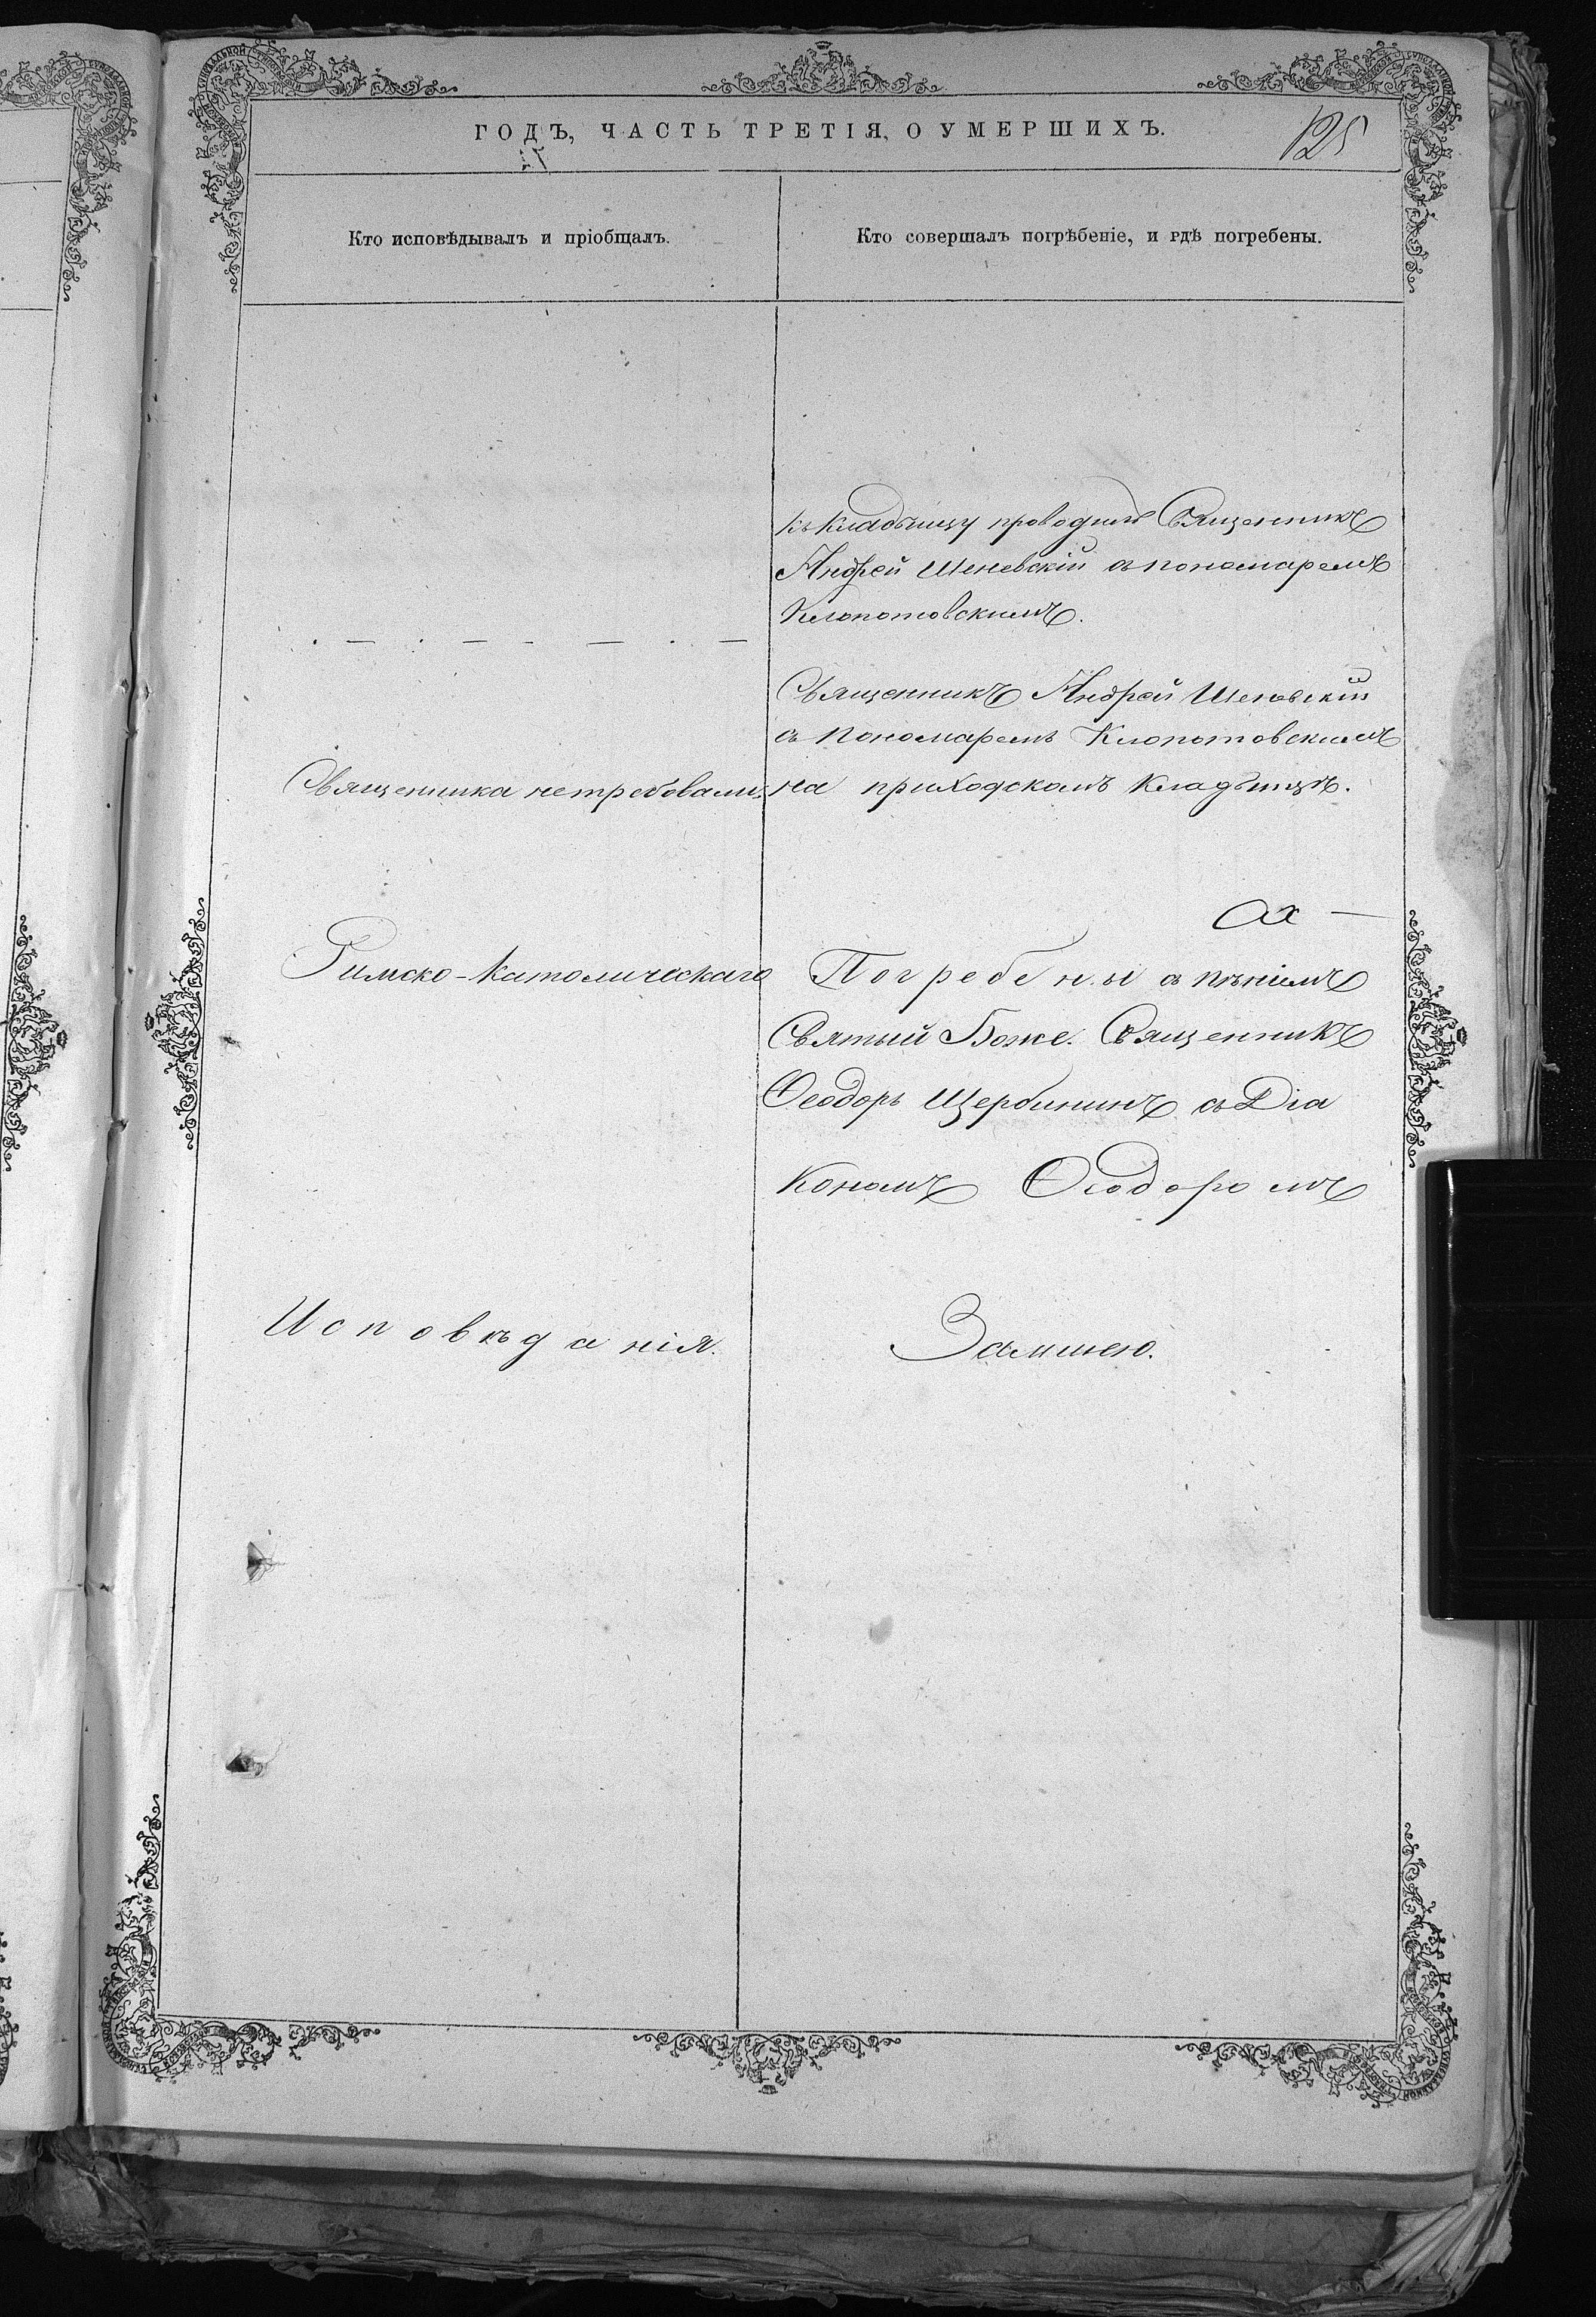 ГОДЪ, ЧАСТЬ ТРЕТІЯ, О УМЕРШИХЪ.
125
Кто исповѣдывалъ и пріобщалъ.
Кто совершалъ погрѣбеніе, и гдѣ погребены.
къ Кладбищу проводилъ Священникъ
Андрей Шеневскій съ пономаремъ
Клопотовскимъ.
Священникъ Андрей Шеневскій
съ Пономаремъ Клопотовскимъ
Священника нетребовали.
на приходскомъ Кладбищѣ.
Римско-Католическаго
Погребены съ пѣніемъ
Святый Боже. Священникъ
Ѳеодоръ Щербининъ съ Діа
кономъ Ѳеодоромъ
Исповѣданія.
Замшею.